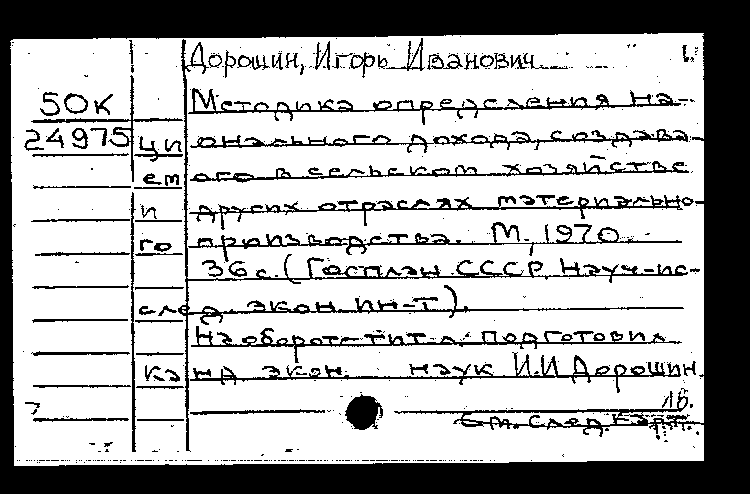 Дорошин, Игорь Иванович 1.
50К Методика определения на-
24975 ционального дохода, создава-
емого в сельском хозяйстве
и других отраслях материально-
го производства. М., 1970.
36 с. (Госплан СССР. Науч-ис-
след. экон. ин-т).
На обороте тит. л.: подготовил
канд экон. наук И.И Дорошин.
1б.
См. след. карт.